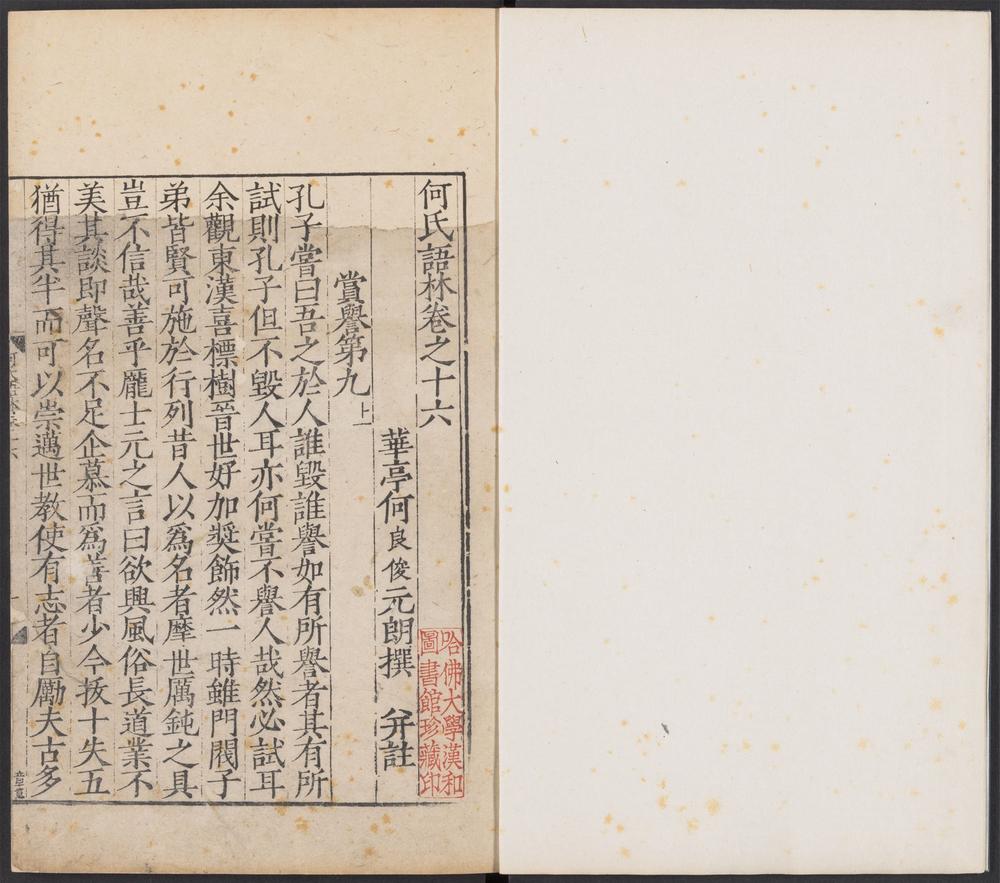 何氏語林卷之十六
華亭何良俊元朗撰 并註
哈佛大學漢和
圖書館珍藏印
賞譽第九上
孔子嘗曰吾之於人誰毀誰譽如有所譽者其有所
試則孔子但不毀人耳亦何嘗不譽人哉然必試耳
余觀東漢喜標樹晉世好加奬飾然一時雖門閥子
弟皆賢可施於行列昔人以爲名者摩世厲鈍之具
豈不信哉善乎龐士元之言曰欲興風俗長道業不
美其談即聲名不足企慕而爲善者少今拔十失五
猶得其半而可以崇邁世教使有志者自勵夫古多